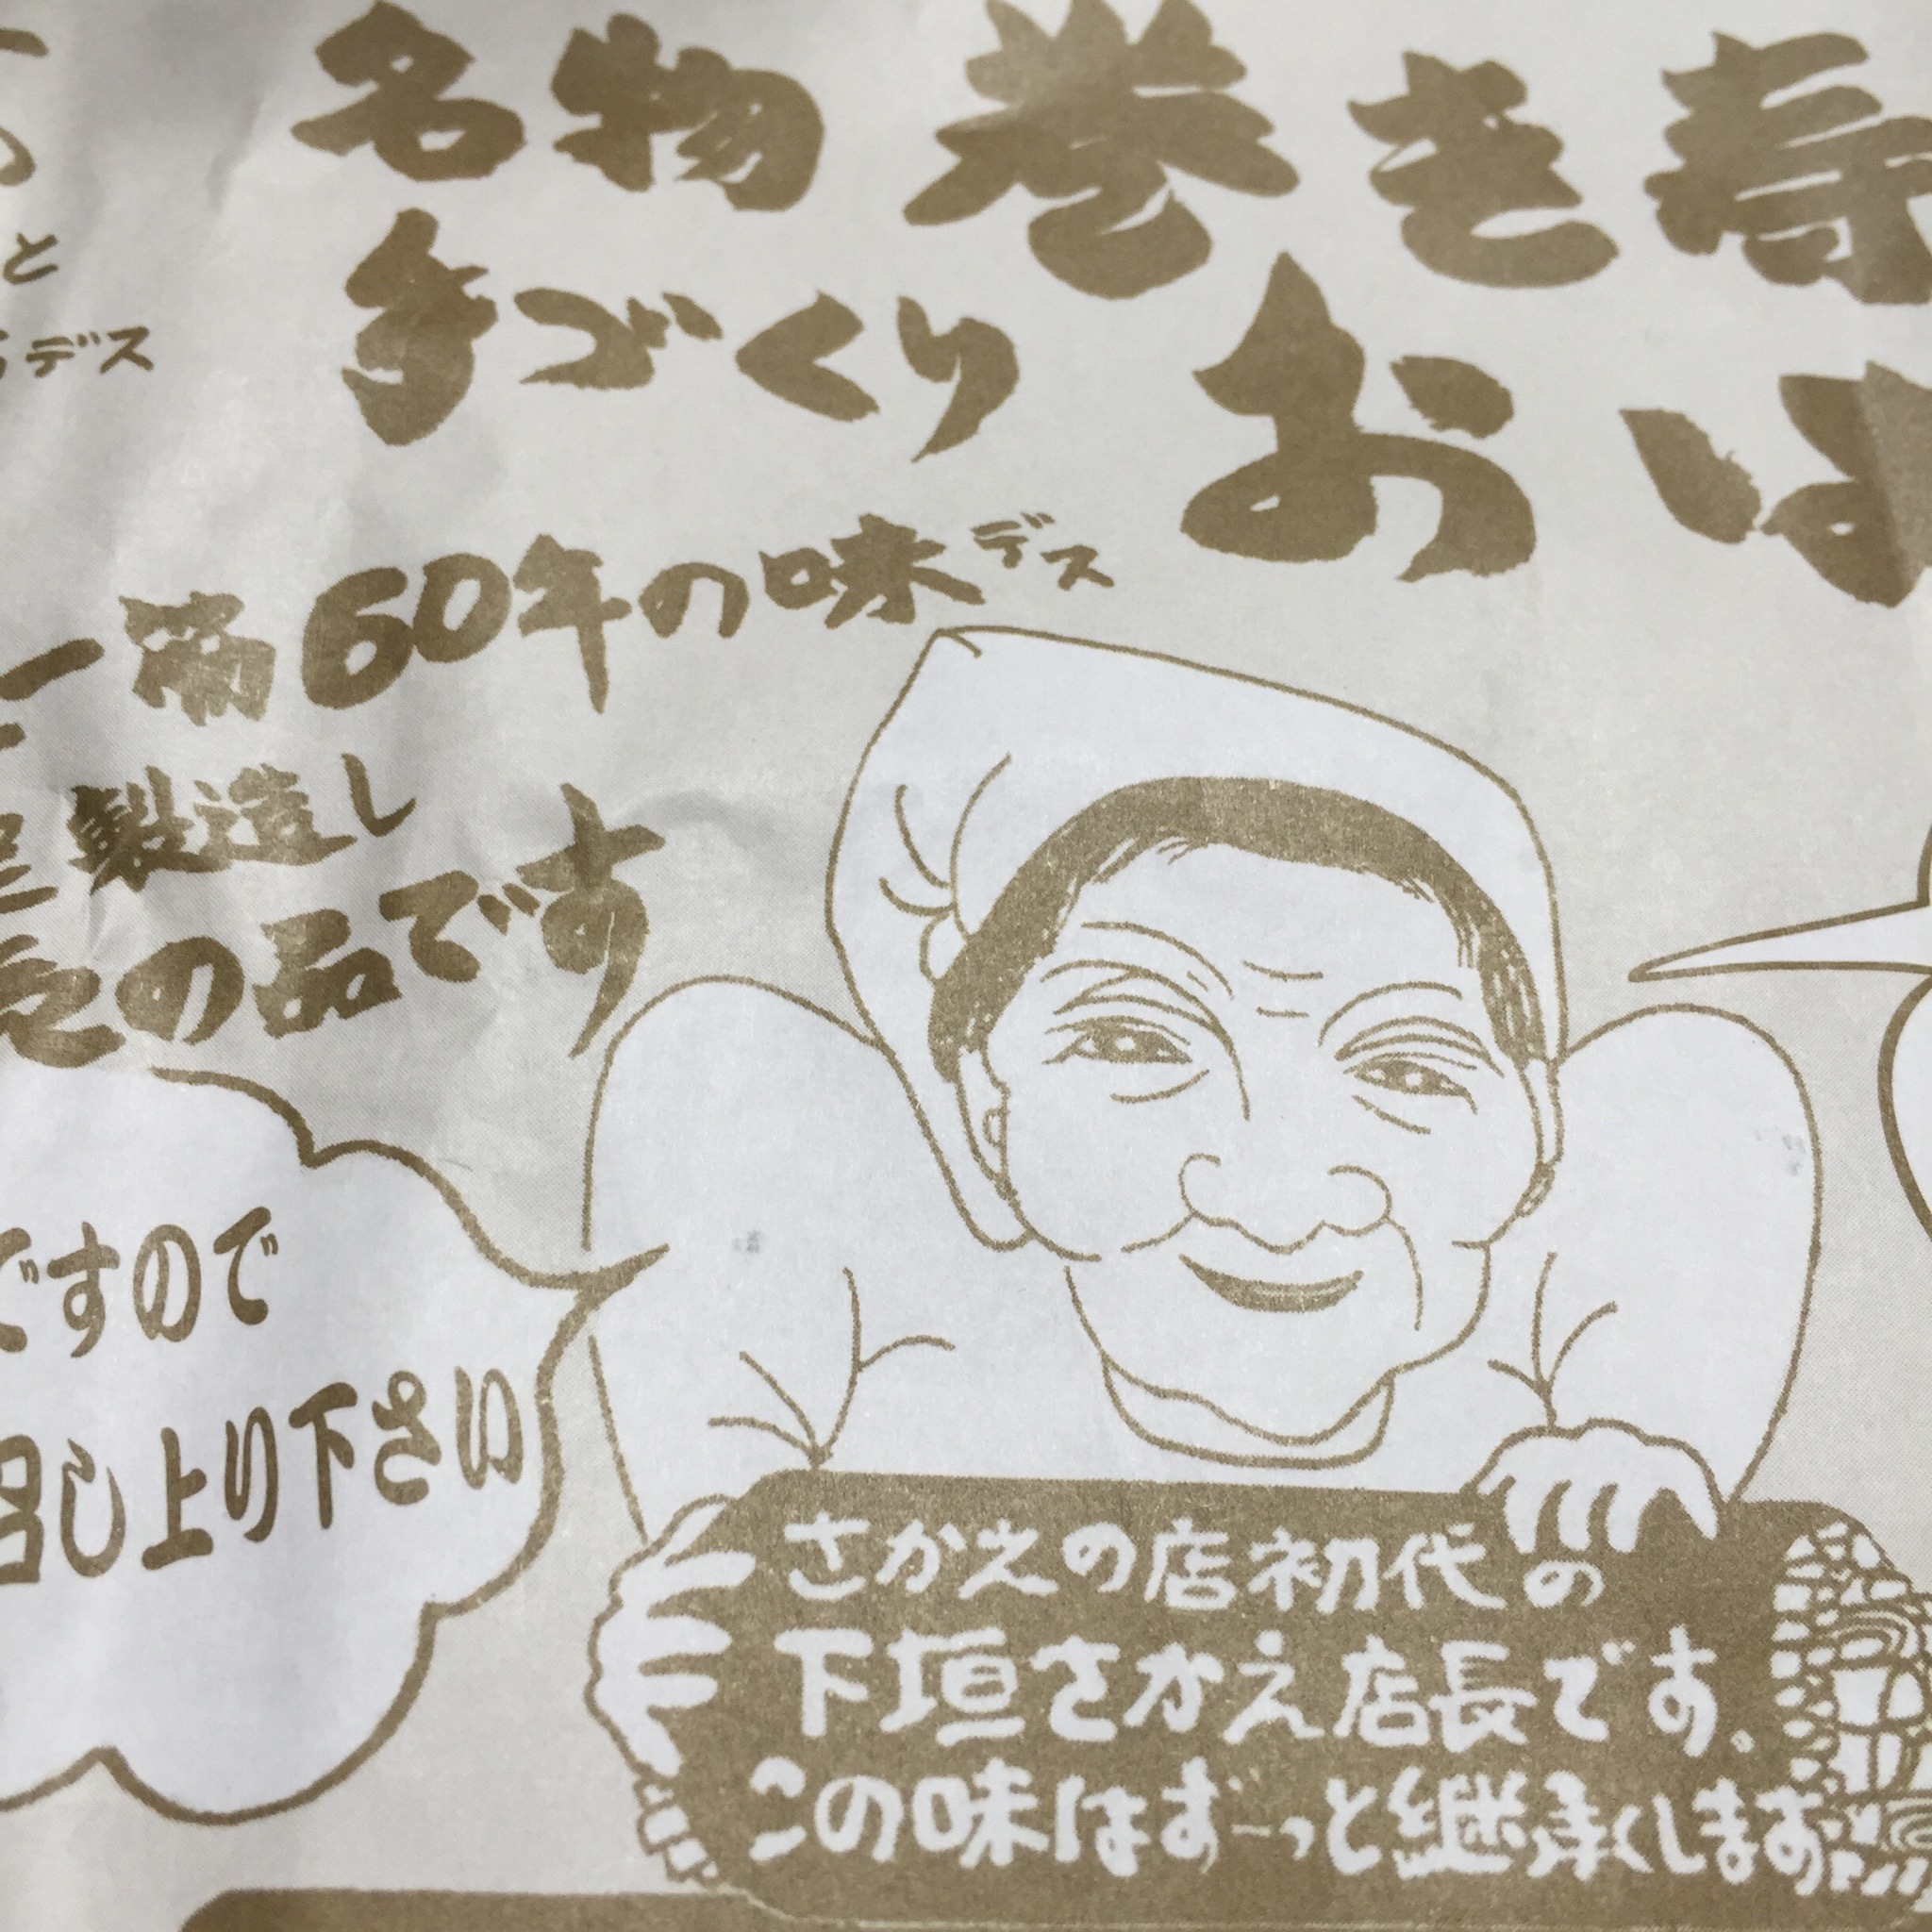 名物 巻き寿
手づくり おは
と
デス
一筋60年の味デス
製造し
の品です
ですので
召し上り下さい
さかえの店初代の
下垣さかえ店長です、
この味はずーっと継承くします